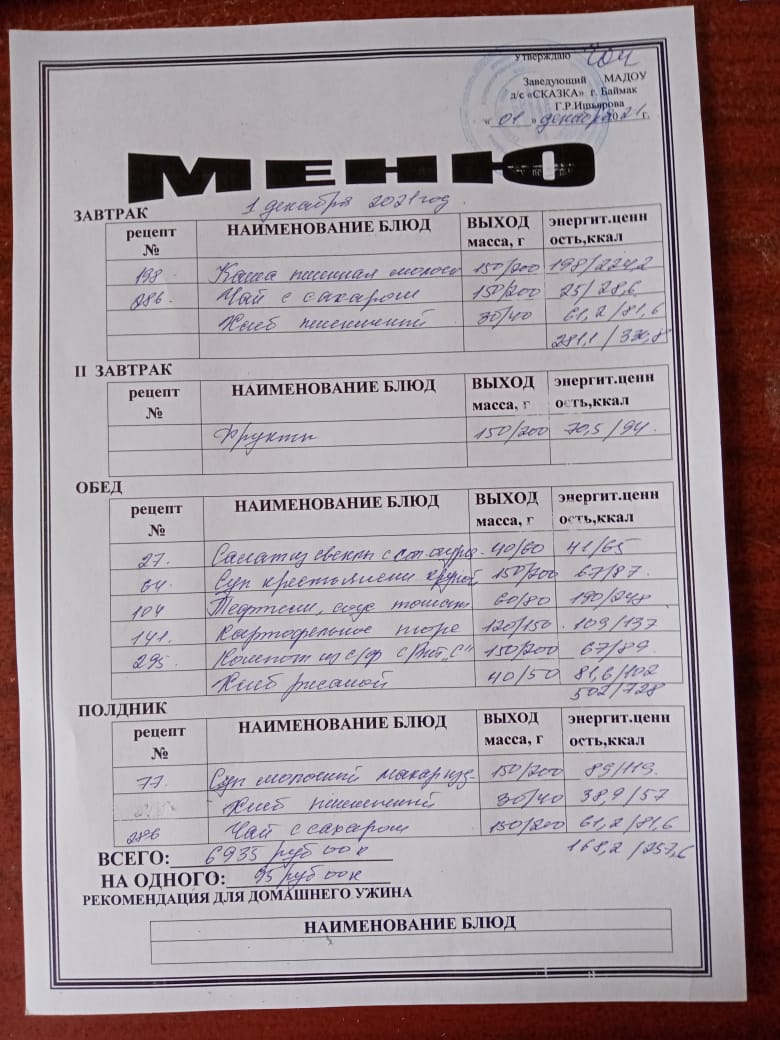 Утверждаю
Заведующий МАДОУ
д/с «СКАЗКА» г. Баймак
Г.Р.Ишьярова
«01» декабря 2021 г.
МЕНЮ
1 декабря 2021 год.
ЗАВТРАК
рецепт № НАИМЕНОВАНИЕ БЛЮД ВЫХОД масса, г энергит.ценность,ккал
198. Каша пшенная молочн 150/200 198/224,2
286. Чай с сахаром 150/200 25/28,6
Хлеб пшеничный 30/40 61,2/81,6
281,1/336,8
II ЗАВТРАК
рецепт № НАИМЕНОВАНИЕ БЛЮД ВЫХОД масса, г энергит.ценность,ккал
Фрукты 150/200 70,5/94.
ОБЕД
рецепт № НАИМЕНОВАНИЕ БЛЮД ВЫХОД масса, г энергит.ценность,ккал
27. Салат из свеклы с сол. огурц. 40/60 41/65
64. Суп крестьянский крупой 150/200 67/87.
104 Тефтели, соус томатн 60/80 190/248
141. Картофельное пюре 120/150. 109/137
295. Компот из с/ф с Вит "С" 150/200 67/89.
Хлеб ржаной 40/50 81,6/102
502/728
ПОЛДНИК
рецепт № НАИМЕНОВАНИЕ БЛЮД ВЫХОД масса, г энергит.ценность,ккал
77. Суп молочный макар 150/200 89/119.
Хлеб пшеничный 30/40 38,9/57
286 Чай с сахаром 150/200 61,2/81,6
ВСЕГО: 6935 руб 00 к 168,2/257,6
НА ОДНОГО: 95 руб 00 к
РЕКОМЕНДАЦИЯ ДЛЯ ДОМАШНЕГО УЖИНА
НАИМЕНОВАНИЕ БЛЮД